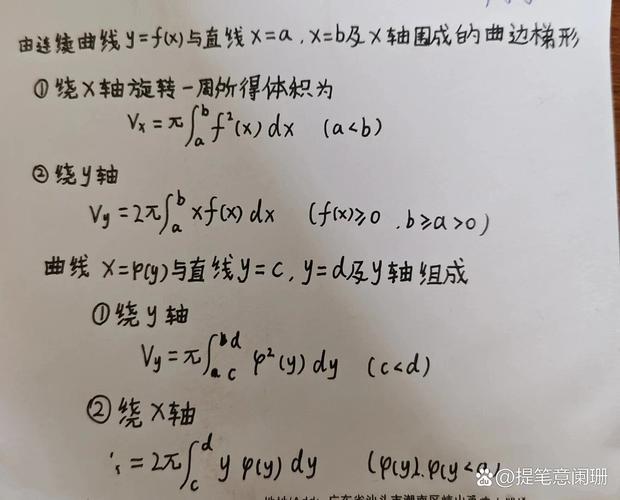 由连续曲线y=f(x)与直线x=a,x=b及x轴围成的曲边梯形
①绕x轴旋转一周所得体积为
Vx=π∫_a^b f²(x)dx (a<b)
②绕y轴
Vy=2π∫_a^b xf(x)dx (f(x)≥0,b≥a>0)
曲线x=φ(y)与直线y=c,y=d及y轴组成
①绕y轴
Vy=π∫_c^d φ²(y)dy (c<d)
②绕x轴
=2π∫_c^d yφ(y)dy
广东省汕头市潮南区
@提笔意阑珊